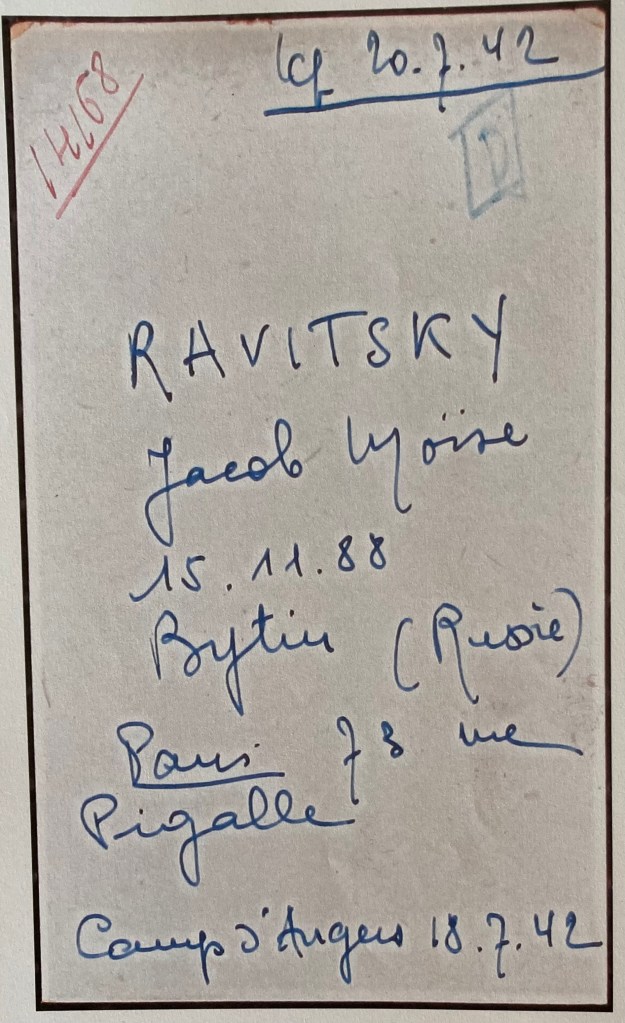 20.7.42
D
RAVITSKY
Jacob Moïse
15.11.88
Bytin (Russie)
Paris 73 rue
Pigalle
Camp d'Angers 18.7.42